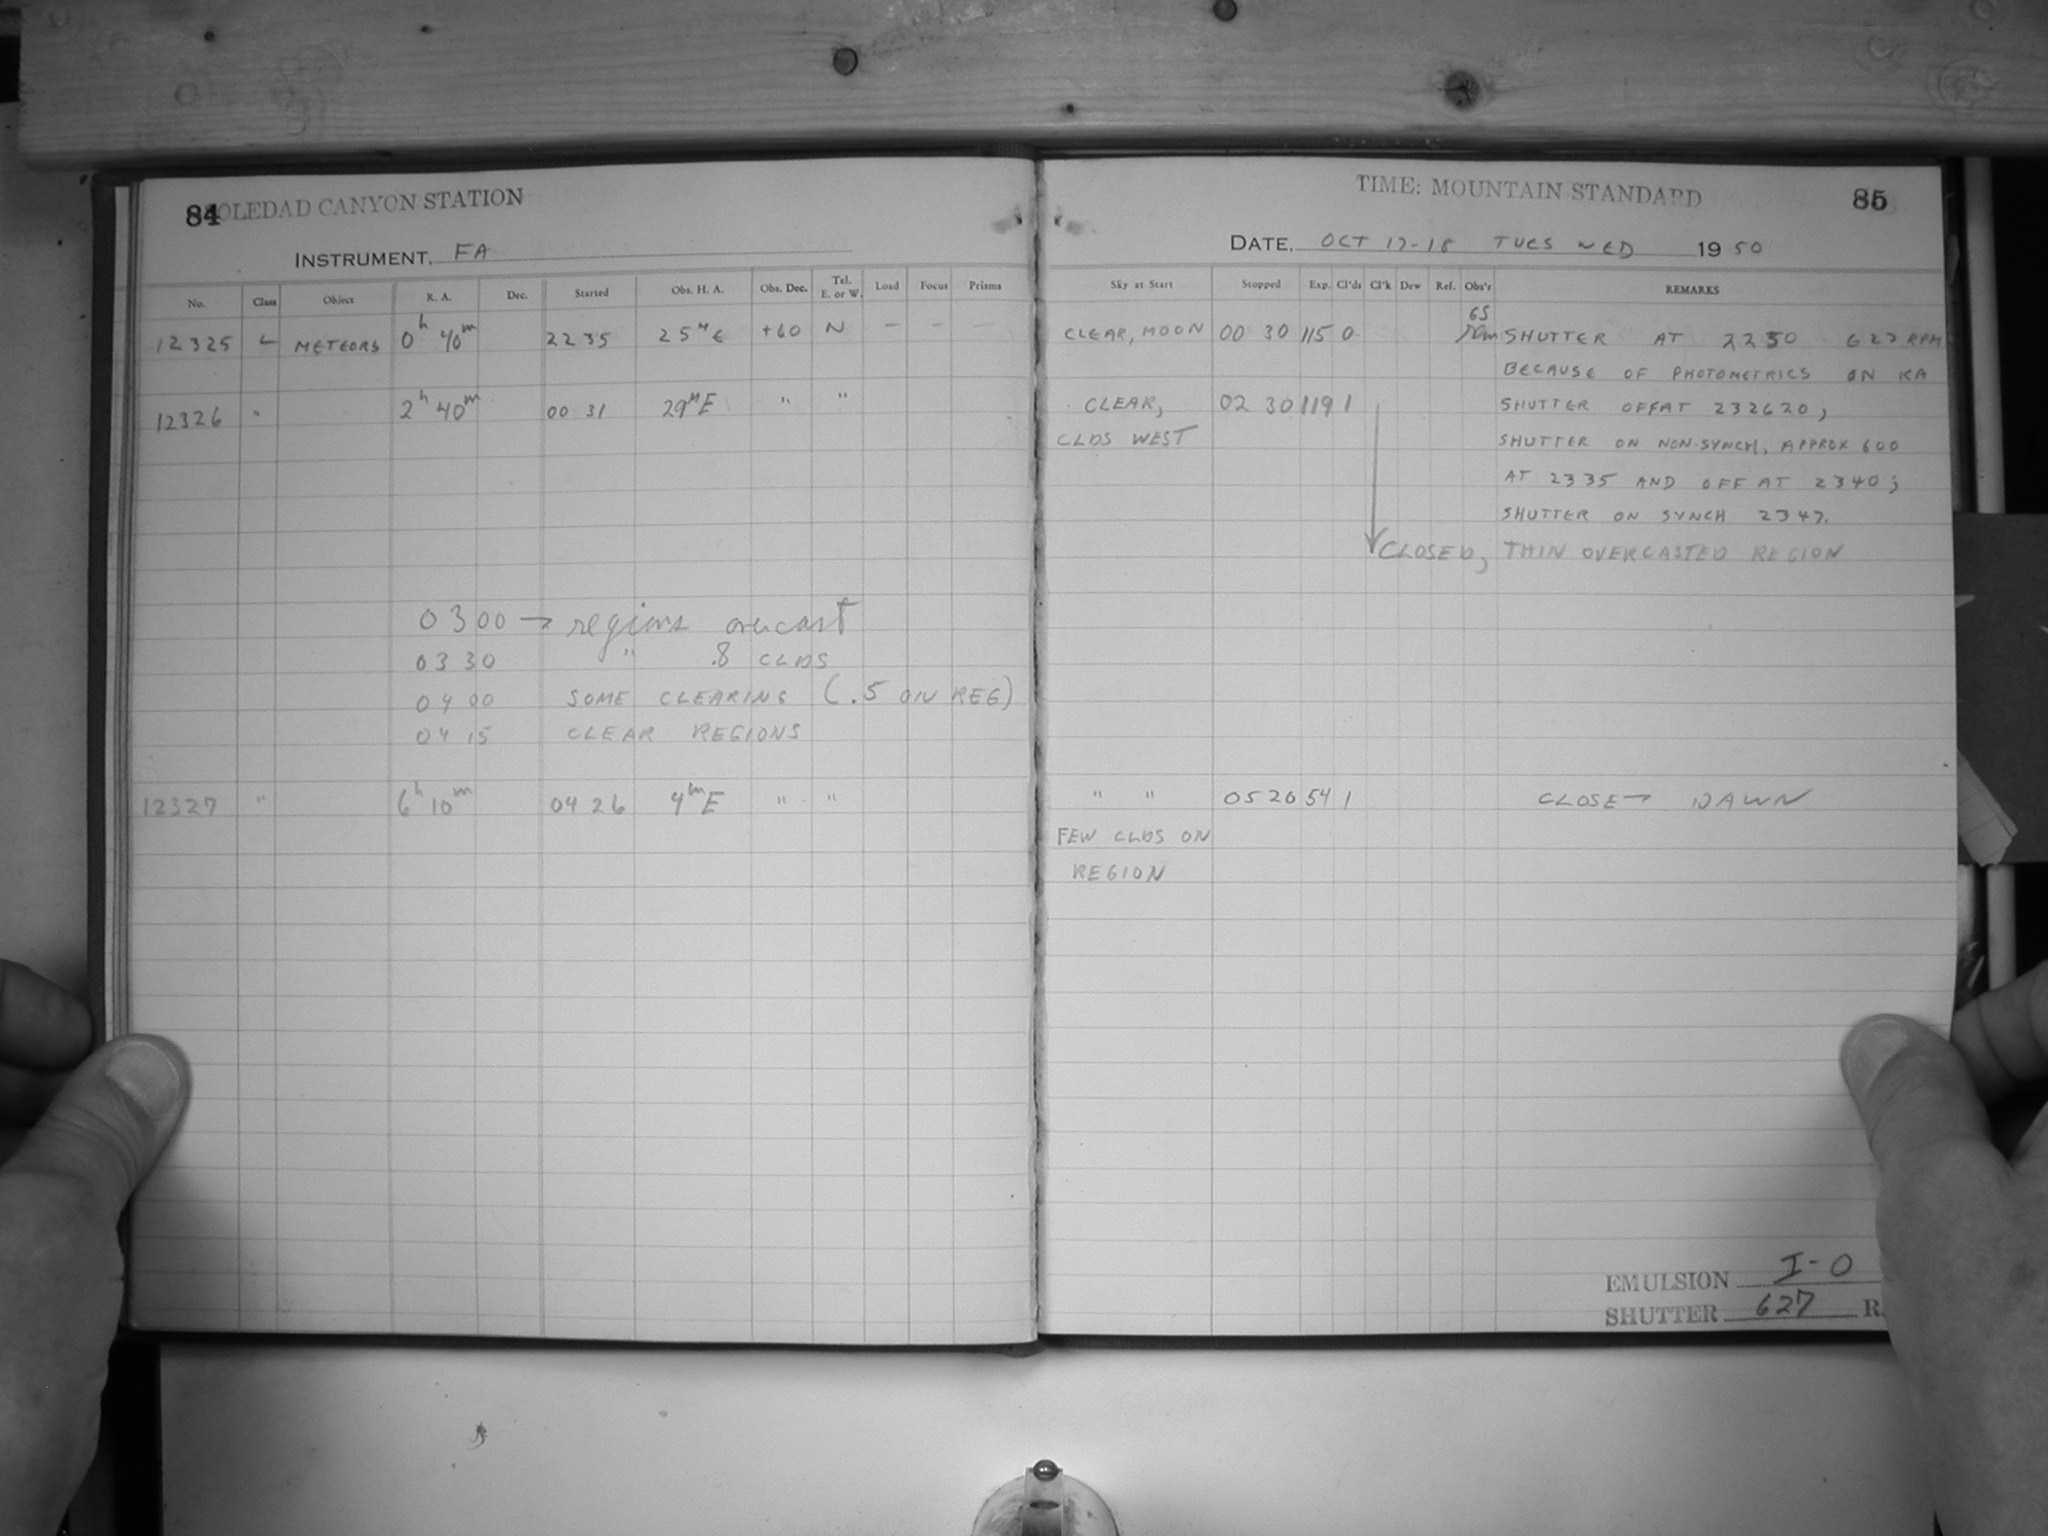 84 SOLEDAD CANYON STATION
INSTRUMENT, FA
No. Class Object R. A. Dec. Started Obs. H. A. Obs. Dec. Tel. E. or W. Load Focus Prisms
12325 L METEORS 0h 40m 22 35 25M E +60 N - - -
12326 " 2h 40m 00 31 29M E " "
03 00 → regions overcast
03 30 " .8 CLDS
04 00 SOME CLEARING (.5 ON REG)
04 15 CLEAR REGIONS
12327 " 6h 10m 04 26 4m E " "
TIME: MOUNTAIN STANDARD 85
DATE, OCT 17-18 TUES WED 1950
Sky at Start Stopped Exp. Cl'ds Cl'k Dew Ref. Obs'r REMARKS
CLEAR, MOON 00 30 115 0 SHUTTER AT 2250 627 RPM
BECAUSE OF PHOTOMETRICS ON KA
CLEAR, 02 30 119 1 SHUTTER OFF AT 232620;
CLDS WEST SHUTTER ON NON-SYNCH, APPROX 600
AT 2335 AND OFF AT 2340;
SHUTTER ON SYNCH 2347.
CLOSED, THIN OVERCASTED REGION
" " 05 20 54 1 CLOSE → DAWN
FEW CLDS ON
REGION
EMULSION I-O
SHUTTER 627 R.